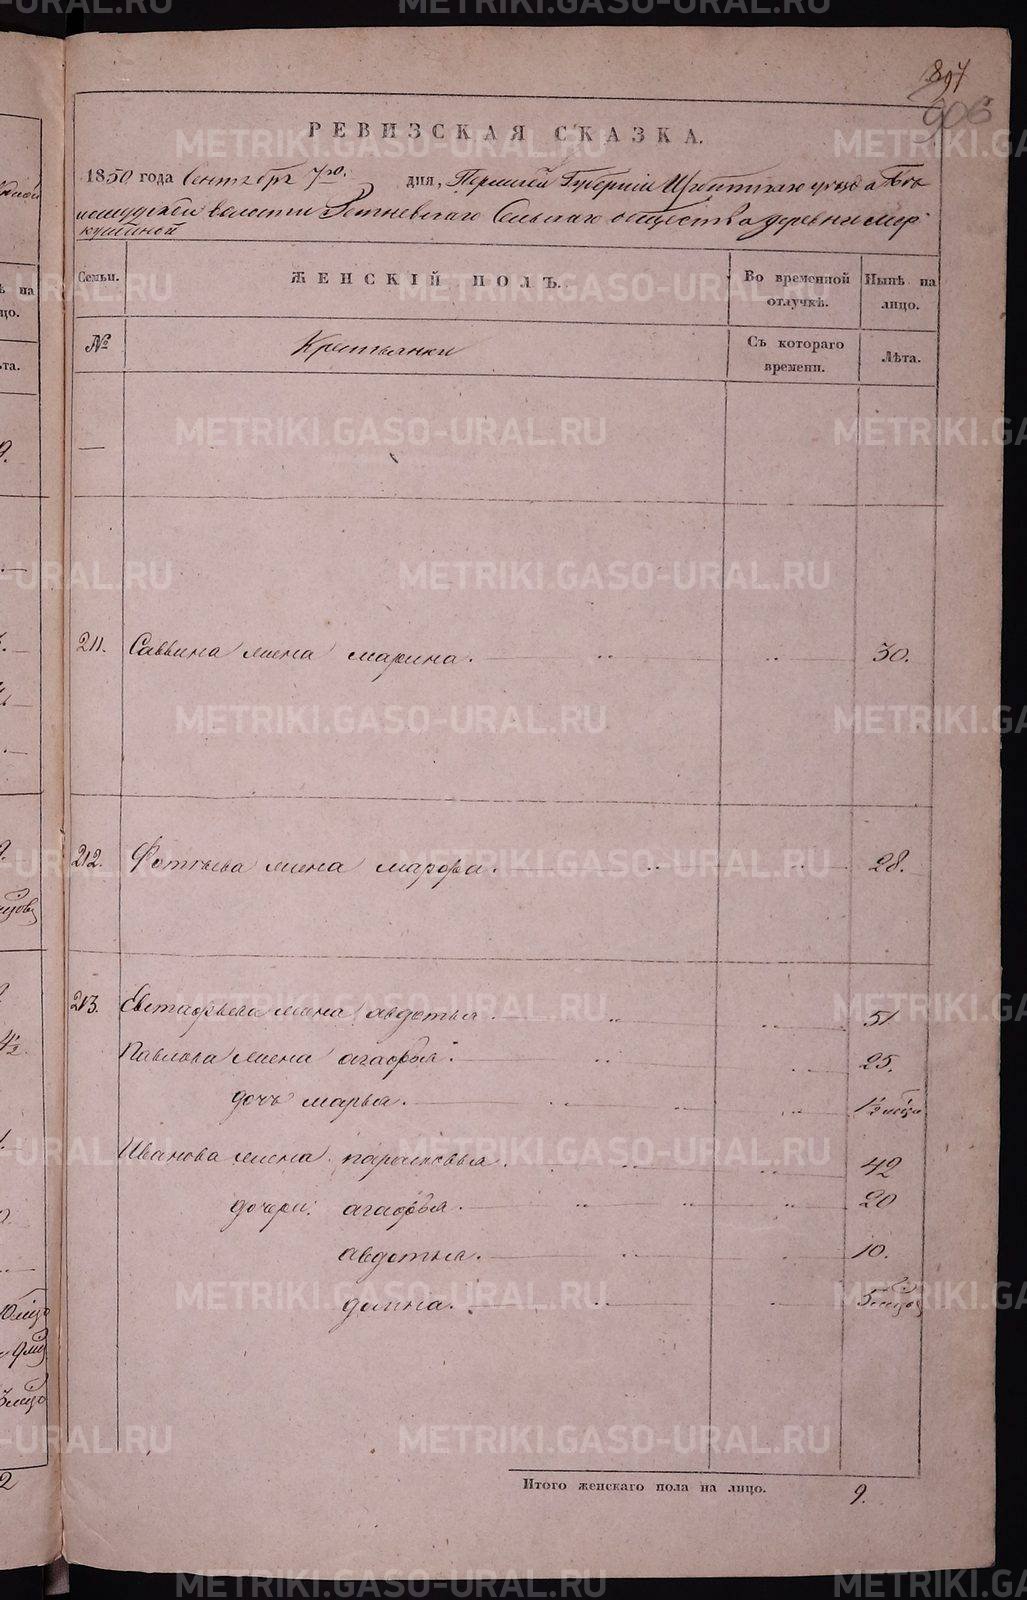 897
906
РЕВИЗСКАЯ СКАЗКА.
1850 года Сентября 7го. дня, Пермской Губернии Ирбитскаго уезда Бѣ
лослудской волости Ретневскаго Сельскаго общества деревни мер
кушиной
Семьи. ЖЕНСКІЙ ПОЛЪ. Во временной отлучкѣ. Нынѣ на лицо.
№ Крестьянки Съ котораго времени. Лѣта.
—
211. Саввина жена марина. 30.
212. Фотѣева жена марфа. 28.
213. Евстафьева жена авдотья. 51
Павлова жена агафья. 25.
дочь марья. 1½ мѣся
Иванова жена парасковья. 42
дочери: агафья. 20
авдотья. 10.
домна. 5 мѣсцов
Итого женскаго пола на лицо. 9.
METRIKI.GASO-URAL.RU